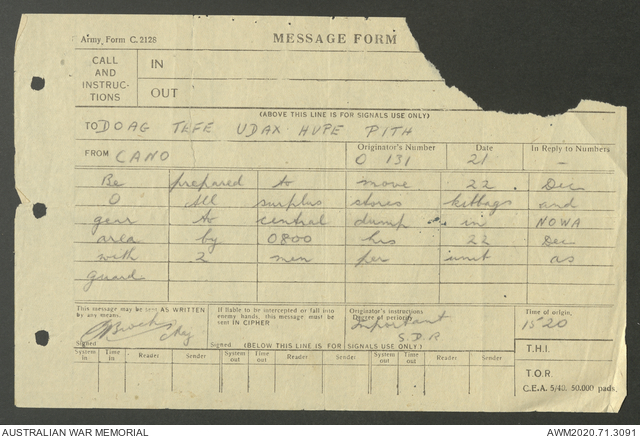 Army Form C. 2128
MESSAGE FORM
CALL AND INSTRUC- TIONS
IN
OUT
(ABOVE THIS LINE IS FOR SIGNALS USE ONLY)
TO DOAG TEFE UDAX HUPE PITH
FROM CANO
Originator's Number O 131
Date 21
In Reply to Numbers –
Be prepared to move 22 Dec
O All surplus stores kitbags and
gear to central dump in NOWA
area by 0800 hrs 22 Dec
with 2 men per unit as
guard
This message may be sent AS WRITTEN by any means.
Signed
If liable to be intercepted or fall into enemy hands, this message must be sent IN CIPHER
Signed
Originator's instructions Degree of priority
Important
S.D.R
Time of origin.
1520
(BELOW THIS LINE IS FOR SIGNALS USE ONLY)
System in Time in Reader Sender System out Time out Reader Sender System out Time out Reader Sender
T.H.I.
T.O.R.
C.E.A. 5/40. 50,000 pads.
AUSTRALIAN WAR MEMORIAL
AWM2020.71.3091